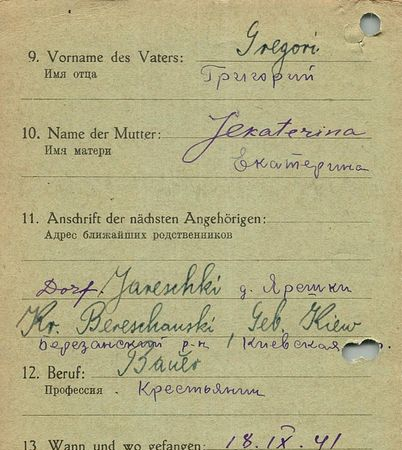 9. Vorname des Vaters: Gregori
Имя отца Григорий
10. Name der Mutter: Jekaterina
Имя матери Екатерина
11. Anschrift der nächsten Angehörigen:
Адрес ближайших родственников
Dorf. Jareschki д. Ярешки
Kr. Bereschanski, Geb. Kiew
Березанский р-н, Киевская
12. Beruf: Bauer
Профессия Крестьянин
13 Wann und wo gefangen: 18.IX.41